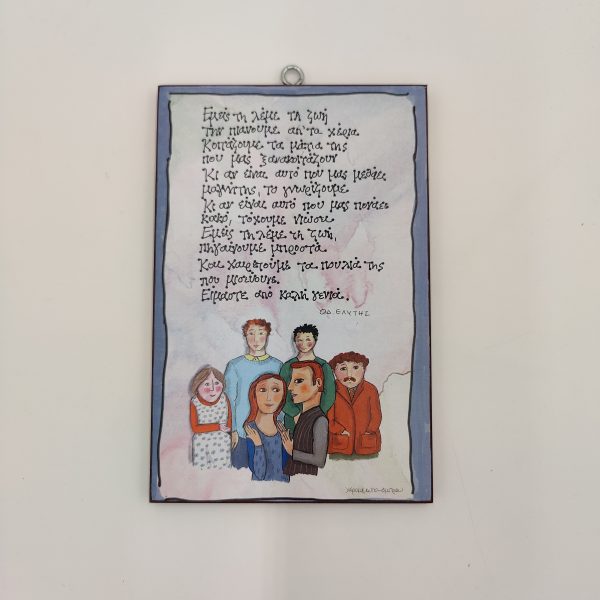 Εμείς τη λέμε τη ζωή
την πιάνουμε απ' τα χέρια
Κοιτάζουμε τα μάτια της
που μας ξανακοιτάζουν
Κι αν είναι αυτό που μας μεθάει
μαγνήτης, το γνωρίζουμε
Κι αν είναι αυτό που μας πονάει
κακό, τόχουμε νιώσει
Εμείς τη λέμε τη ζωή,
πηγαίνουμε μπροστά
Και χαιρετούμε τα πουλιά της
που μισεύουνε.
Είμαστε από καλή γενιά.
ΟΔ. ΕΛΥΤΗΣ